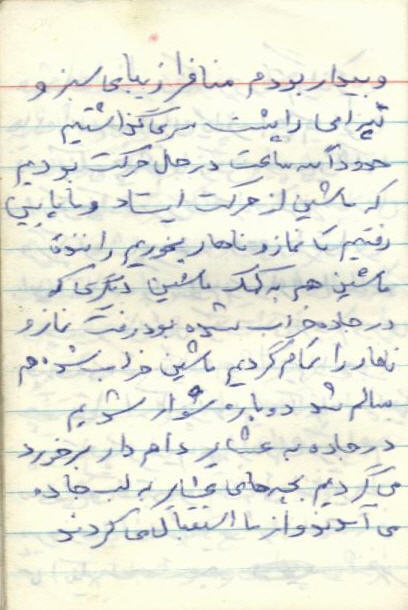 و بیدار بودم مناظر زیبای سبز و
تپه‌هایی را پشت سر می‌گذاشتیم
حدوداً سه ساعت در حال حرکت بودیم
که ماشین از حرکت ایستاد و ما پایین
رفتیم تا نماز و ناهار بخوریم راننده
ماشین هم به کمک ماشین دیگری که
در جاده خراب شده بود رفت نماز و
ناهار را تمام کردیم ماشین خراب شده هم
سالم شد دوباره سوار شدیم
در جاده به عشایر دام دار برخورد
می کردیم بچه‌های عشایر به لب جاده
می آمدند و از ما استقبال می کردند